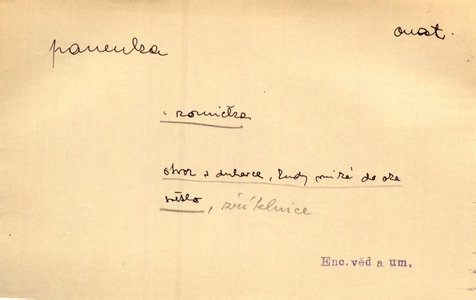 panenka
anat.
= zornička
otvor v duhovce, kudy vniká do oka
světlo, zřítelnice
Enc. věd a um.